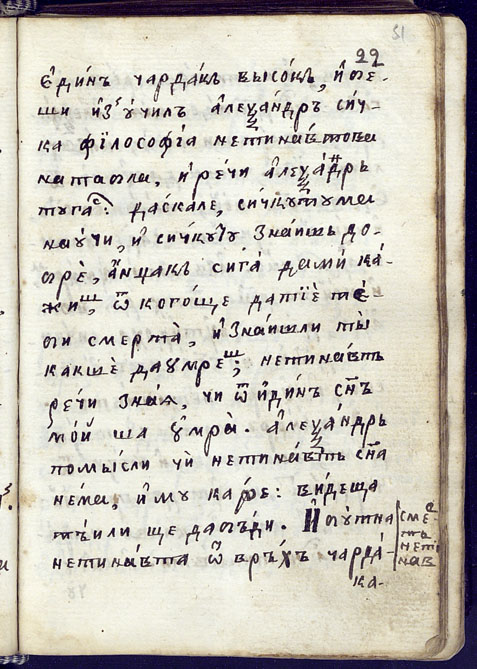 22
51
є҆ди́нъ чарда́къ высо́къ, и҆ бе-
ши и҆з̾ у҆чилъ а҆леѯа́ндръ си́ч-
ка філосо́фіа нетина́втова
ната́бла, и҆ ре́чи а҆леѯа́ндръ
туга̀с: да́скале, си́чкутума
нау́чи, и҆ си́чкуту зна́ишъ до-
брѐ, а҆нџакъ сига̀ дами́ ка́-
жишъ, ѿ кого́ще дати́е те́-
би смертъ̀, и҆ зна́ишли ты̀
какшѐ даумре́шъ; нетина́вть
ре́чи зна́ѧ, чи ѿ и҆ди́нъ сн҃ъ
мо́й ша у҆мра̀. а҆леѯа́ндръ
помы́сли чѝ нетина́вть сн҃а
не́ма, и҆ му ка́же: ви́деща
тъ́или ще дабъ́ди. И҆ бу́тна
нетина́вта ѿ врѣ́хъ чарда́-
ка-
сме-
ть
нети
нав